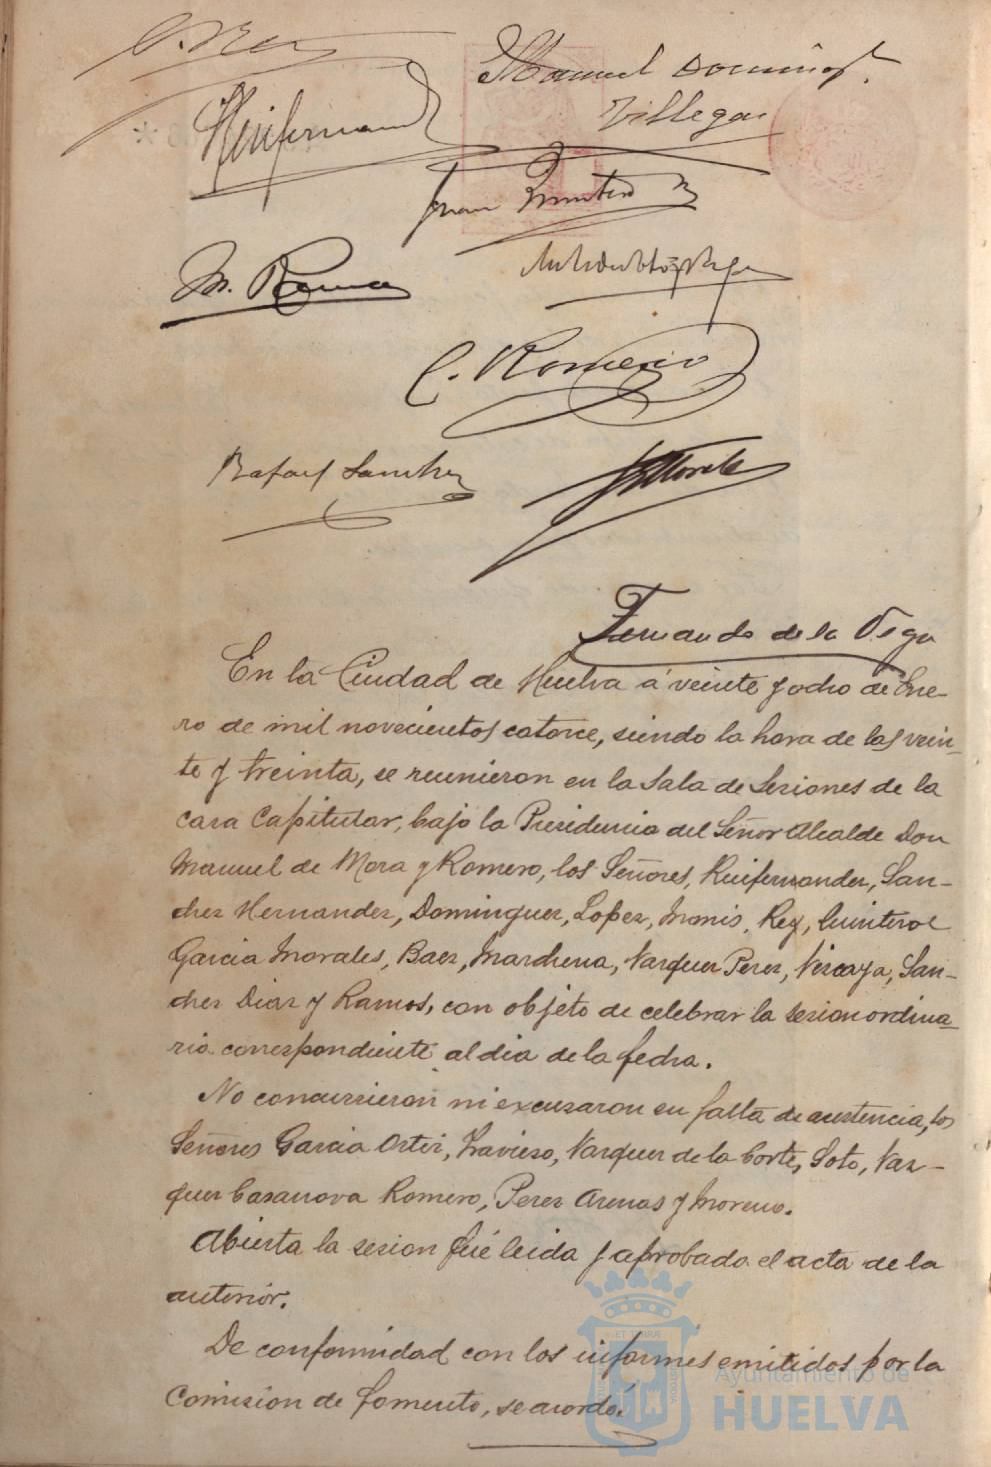 Manuel Doming.
Villegas
Ruifernand
Juan Quintero
M. Ramos
C. Romero
Rafael Sanchez
Fernando de la Vega
En la Ciudad de Huelva á veinte y ocho de Ene-
ro de mil novecientos catorce, siendo la hora de las vein-
te y treinta, se reunieron en la Sala de Sesiones de la
casa Capitular, bajo la Presidencia del Señor Alcalde Don
Manuel de Mora y Romero, los Señores, Ruifernandez, San-
chez Hernandez, Dominguez, Lopez, Monis, Rey, Quintero
Garcia Morales, Baez, Marchena, Vazquez Perez, Vizcaya, San-
chez Diaz y Ramos, con objeto de celebrar la sesion ordina
ria correspondiente al dia de la fecha.
No concurrieron ni excusaron su falta de asistencia, los
Señores Garcia Ortiz, Travieso, Vazquez de la Corte, Soto, Vaz-
quez Casanova Romero, Perez Arenas y Moreno.
Abierta la sesion fué leida y aprobada el acta de la
anterior.
De conformidad con los informes emitidos por la
Comision de fomento, se acordó.
Ayuntamiento de
HUELVA